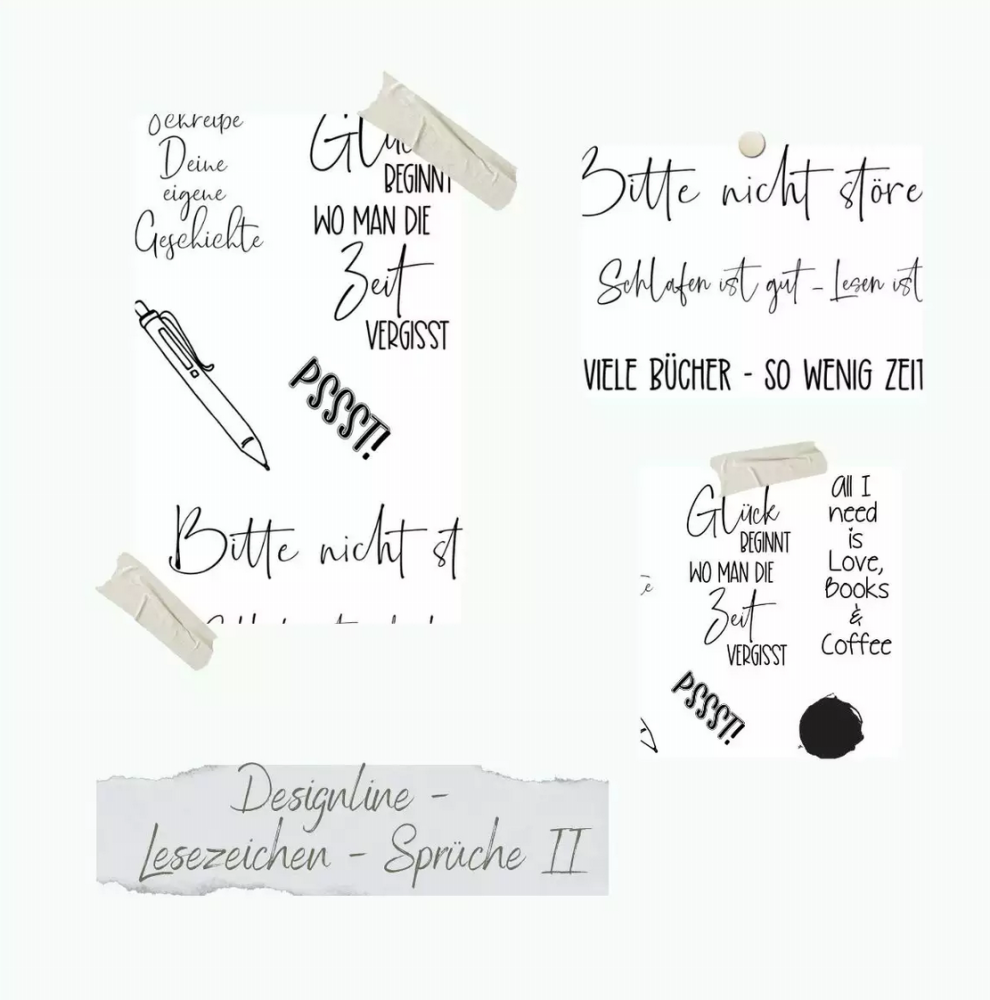 Schreibe
Deine
eigene
Geschichte
Glück
BEGINNT
WO MAN DIE
Zeit
VERGISST
PSSST!
Bitte nicht st
Bitte nicht störe
Schlafen ist gut - Lesen ist
VIELE BÜCHER - SO WENIG ZEIT
Glück
BEGINNT
WO MAN DIE
Zeit
VERGISST
PSSST!
All I
need
is
Love,
Books
&
Coffee
Designline -
Lesezeichen - Sprüche II